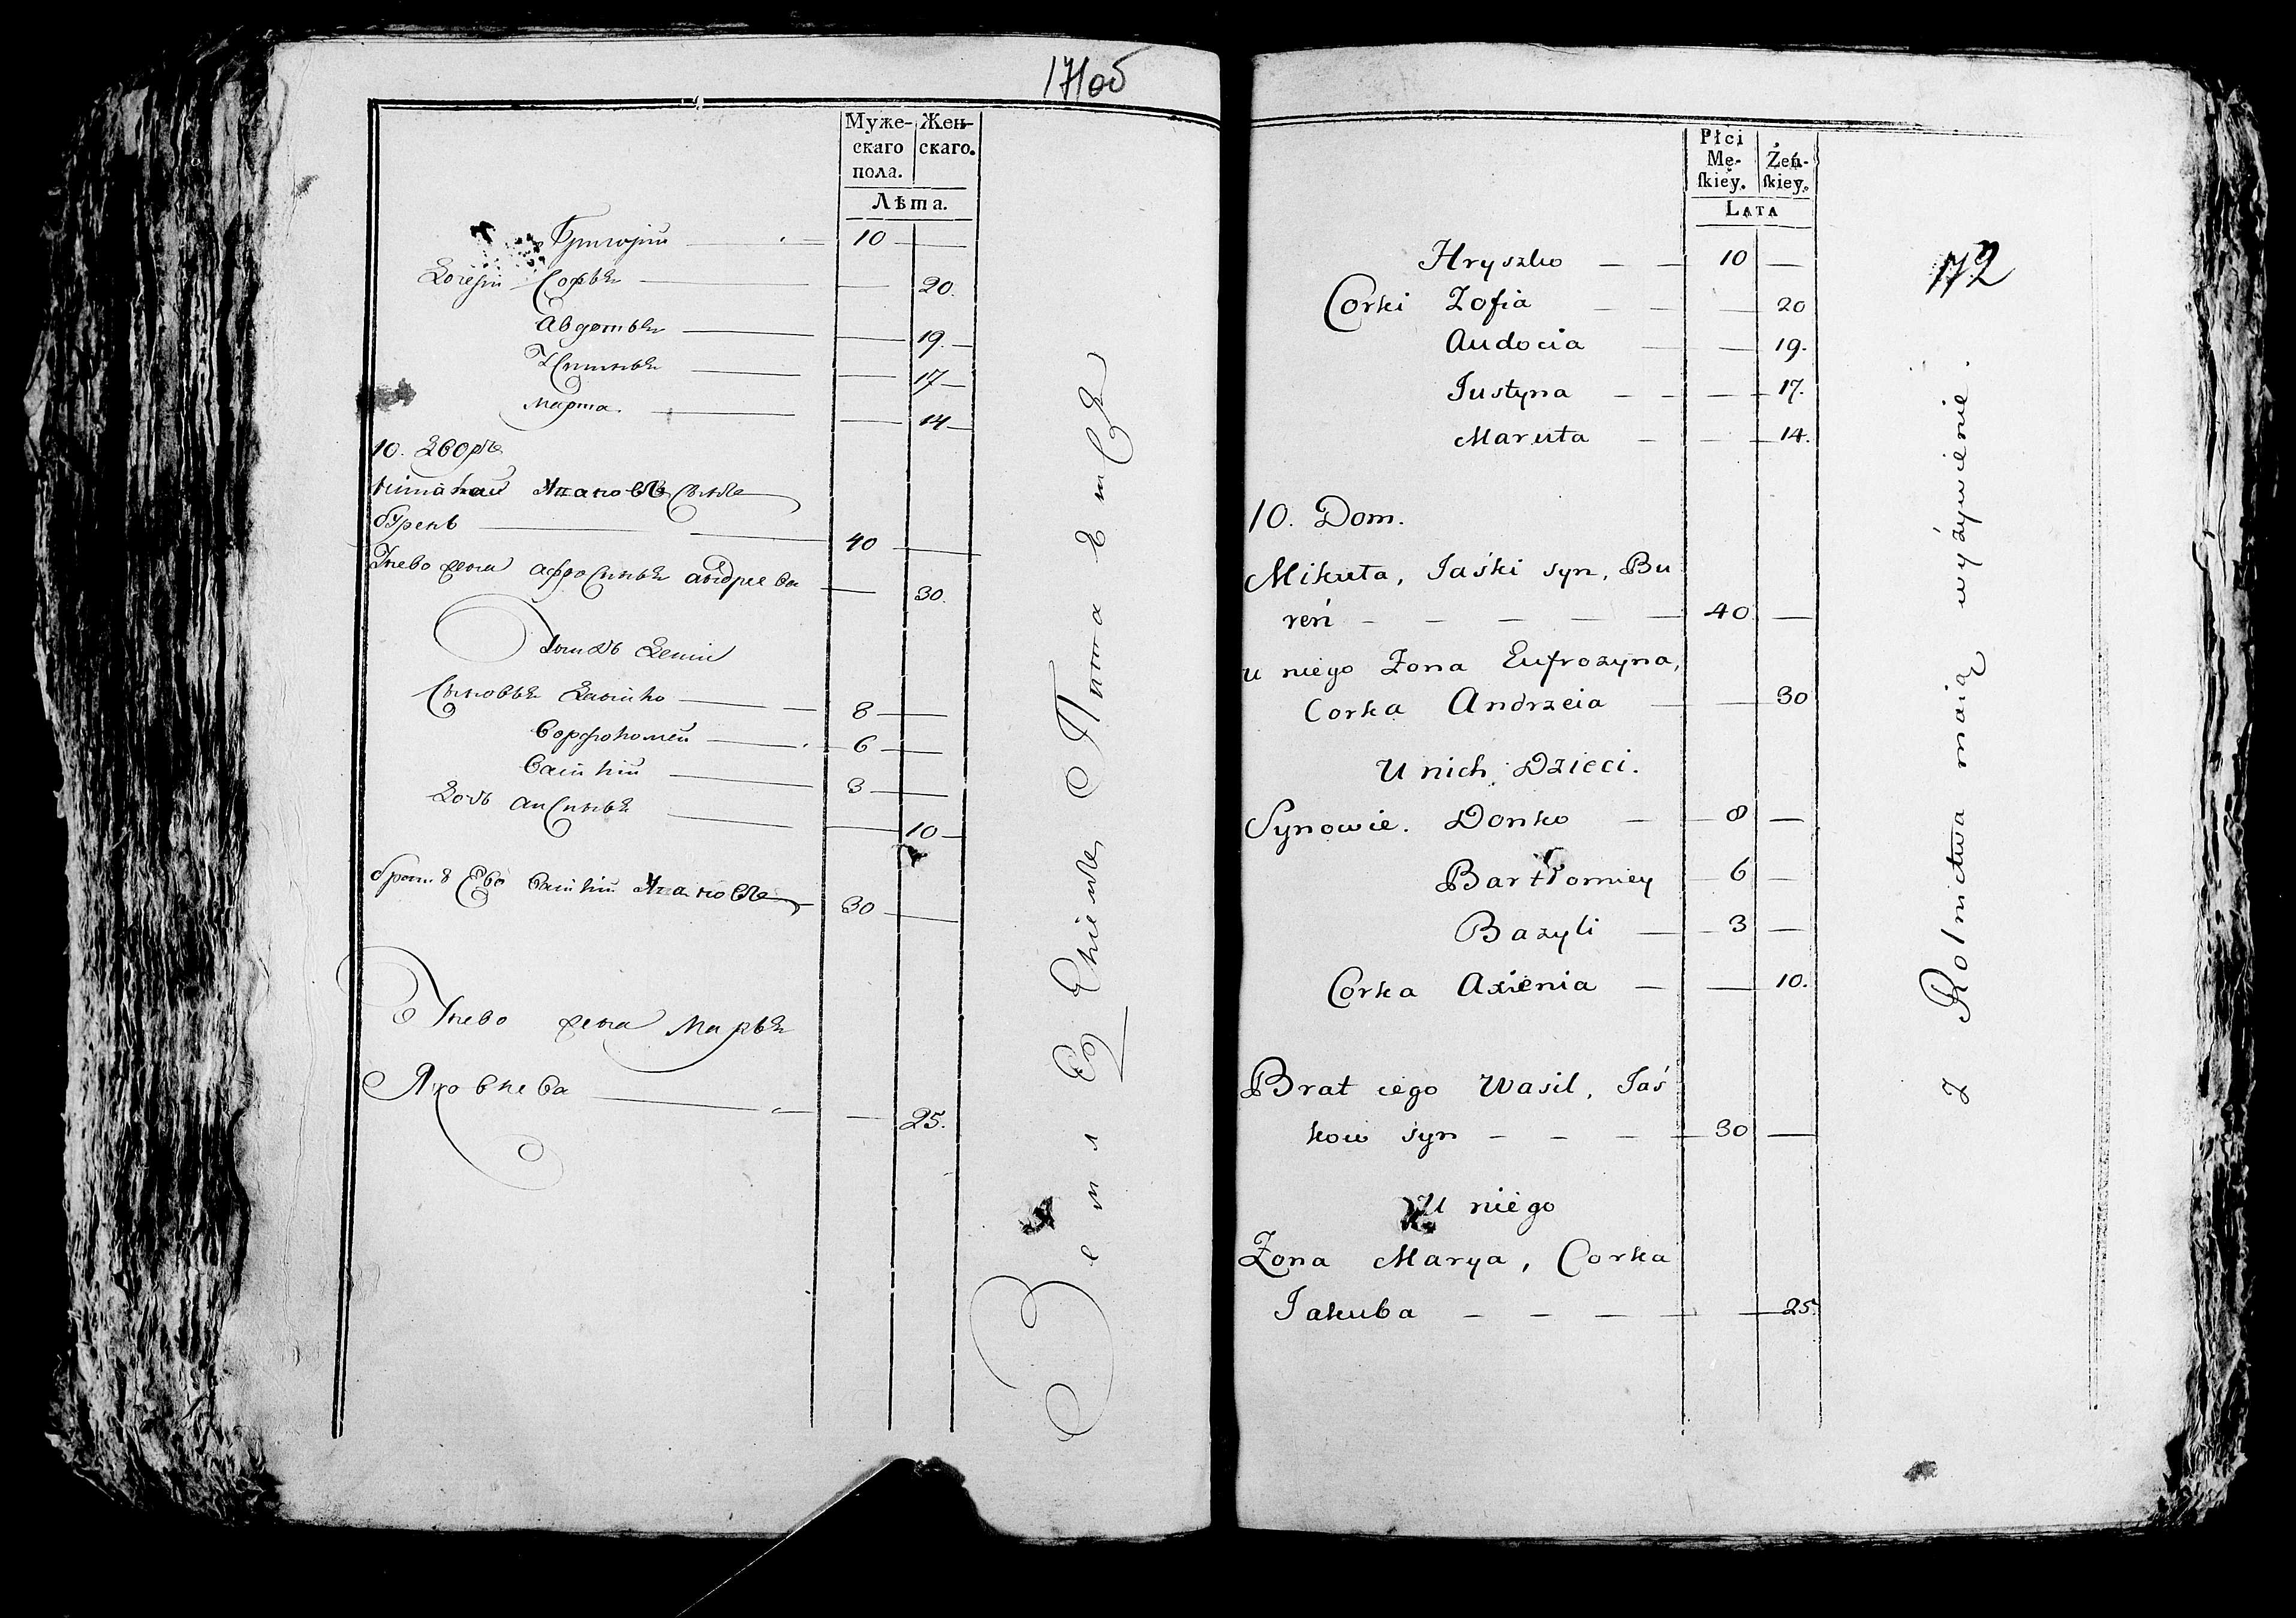 171об
Муже- Жен-
скаго скаго.
пола.
Лѣта.
Григорій 10
Дочери Софья 20.
Авдотья 19.
Устинья 17
Марта. 14
10. Дворъ
бурень 40
Унево жена Афросинья Андреева 30.
Унихъ дети
Сыновья Данико 8
Ворфоломей 6
Василій 3
Дочь Аксинья 10
братъ Ево Василій 30
Унево жена Марья
Яковлева 25.
Płci
Mę- Żeń-
skiey. skiey.
LATA
172
Hryszko 10
Corki Zofia 20
Audocia 19.
Justyna 17.
Maruta 14.
10. Dom.
Mikuta, Jaśki syn, Bu
reń 40
u niego Żona Eufrozyna,
Corka Andrzeia 30
U nich Dzieci.
Synowie. Donko 8
Bartłomiey 6
Bazyli 3
Corka Axienia 10.
Brat iego Wasil, Jaś
kow syn 30
U niego
Żona Marya, Corka
Jakuba 25.
z Rolnictwa maią wyżywienie.